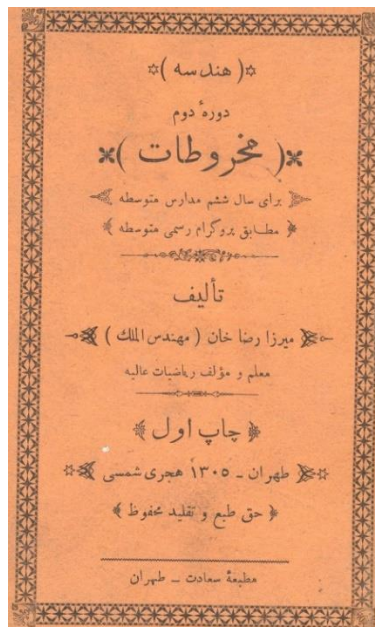 ( هندسه )
دورهٔ دوم
( مخروطات )
برای سال ششم مدارس متوسطه
مطابق پروگرام رسمی متوسطه
تألیف
میرزا رضا خان ( مهندس الملك )
معلم و مؤلف ریاضیات عالیه
چاپ اول
طهران ـ ۱۳۰۵ هجری شمسی
حق طبع و تقلید محفوظ
مطبعهٔ سعادت ـ طهران